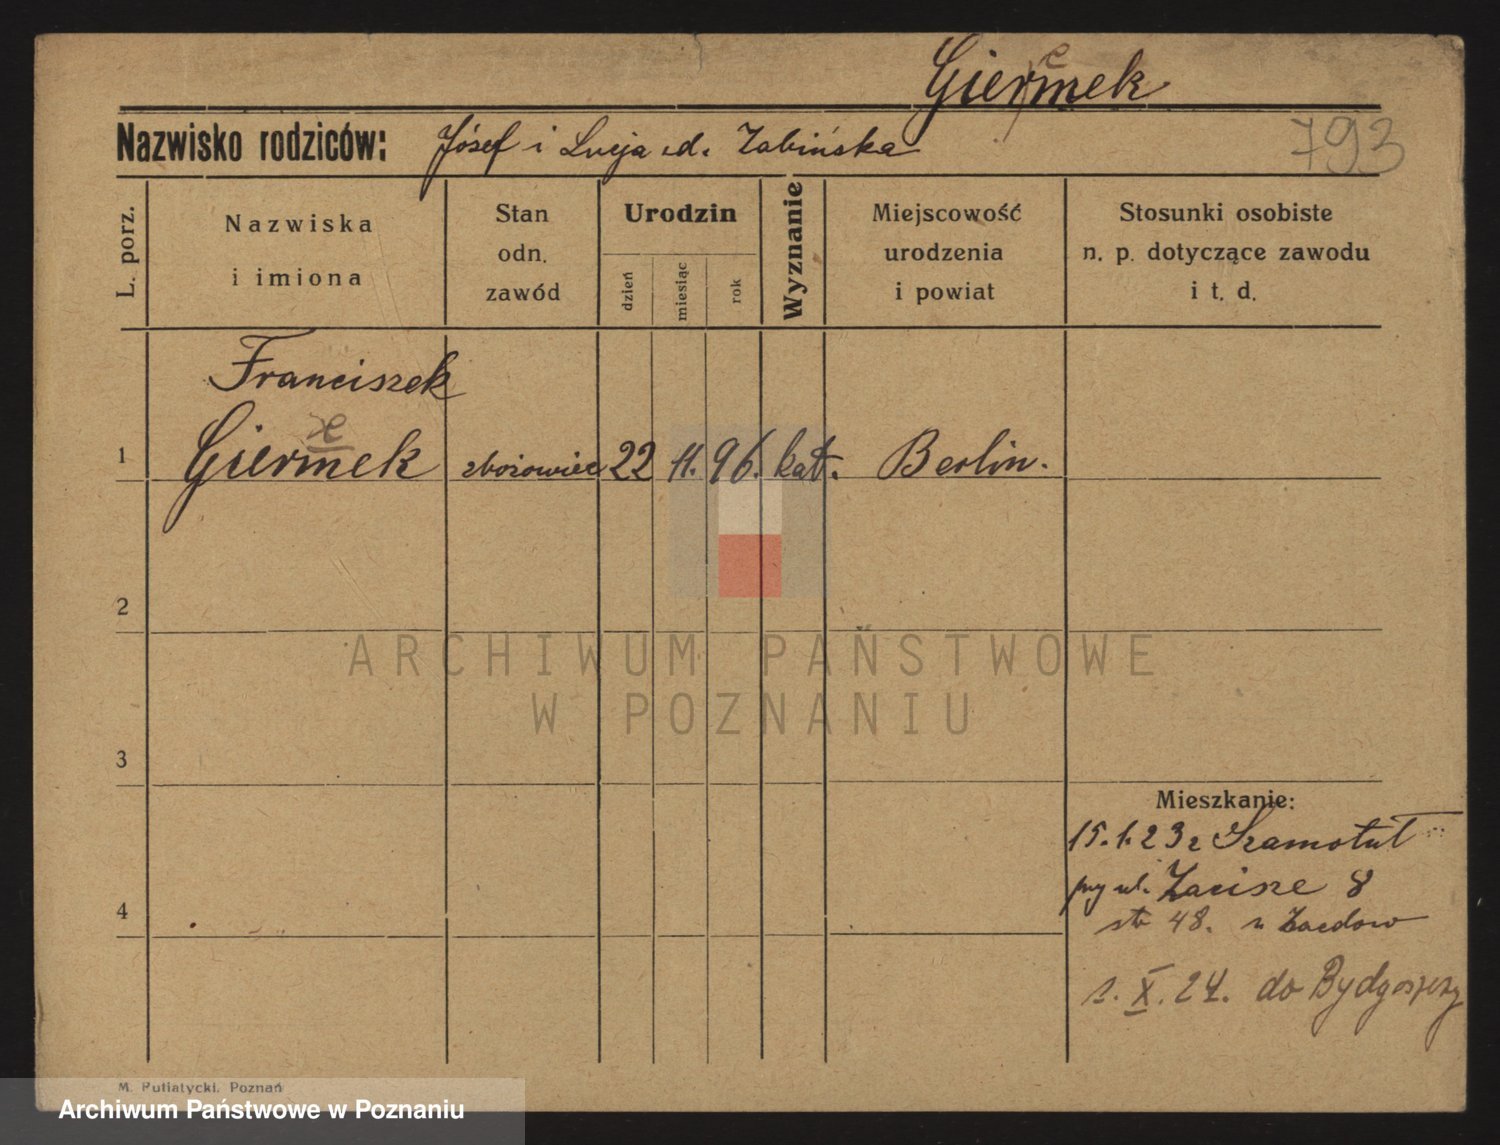 Giermek
e
Nazwisko rodziców: Józef i Lucja d. Zabińska
793
L. porz.
Nazwiska
i imiona
Stan
odn.
zawód
Urodzin
dzień
miesiąc
rok
Wyznanie
Miejscowość
urodzenia
i powiat
Stosunki osobiste
n. p. dotyczące zawodu
i t. d.
Franciszek
e
1 Giermek zbożowiec 22 11. 96. kat. Berlin.
2
ARCHIWUM PAŃSTWOWE
W POZNANIU
3
Mieszkanie:
15.1.23 z Szamotuł
przy ul. Zacisze 8
4
48.
X. 24. do Bydgoszczy
M. Putiatycki, Poznań
Archiwum Państwowe w Poznaniu